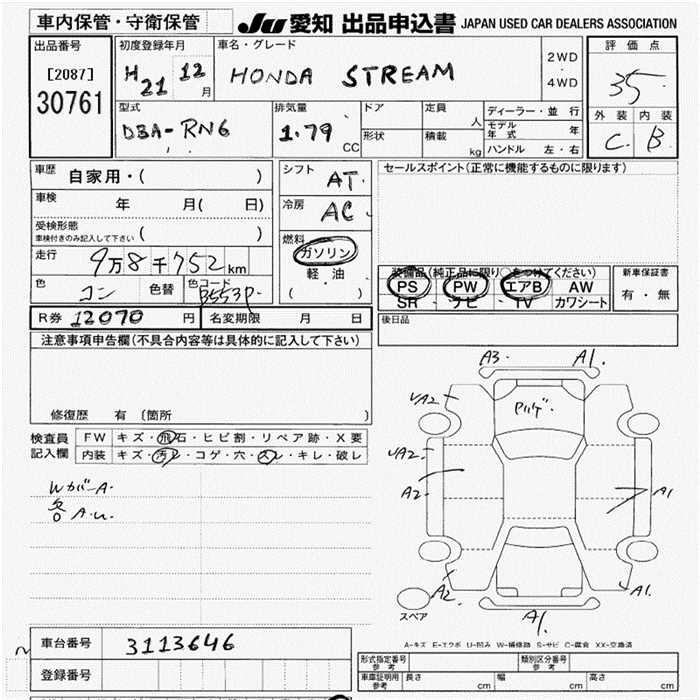 車内保管・守衛保管
JU 愛知 出品申込書 JAPAN USED CAR DEALERS ASSOCIATION
出品番号
[2087]
30761
初度登録年月
H 21 12 月
車名・グレード
HONDA STREAM
2WD
・
4WD
評価点
3.5
外装 内装
C. B.
型式
DBA-RN6
排気量
1.79 CC
ドア
形状
定員 人
積載 kg
ディーラー・並行
モデル年式 年
ハンドル 左・右
車歴 自家用・( )
車検 年 月( 日)
受検形態
車検付きのみ記入して下さい ( )
走行 9万8千752km
色 コン 色替 色コード B553P
シフト AT
冷房 AC
燃料
ガソリン
軽・油
( )
セールスポイント(正常に機能するものに限ります)
装備品(純正品に限り○をつけてください)
PS PW エアB AW
SR ナビ TV カワシート
新車保証書
有・無
R券 12070 円 名変期限 月 日
後日品
注意事項申告欄(不具合内容等は具体的に記入して下さい)
修復歴 有 〔箇所 〕
検査員記入欄
FW キズ・飛石・ヒビ割・リペア跡・X要
内装 キズ・汚レ・コゲ・穴・スレ・キレ・破レ
Wカバー A.
各 A.U.
A3. A1.
UA2
UA2
A2
A1
A2 A1.
A1.
スペア
A-キズ E-エクボ U-凹み W-補修跡 S-サビ C-腐食 XX-交換済
車台番号 3113646
登録番号
形式指定番号 参考
類別区分番号 参考
車庫証明用 参考 長さ cm 幅 cm 高さ cm